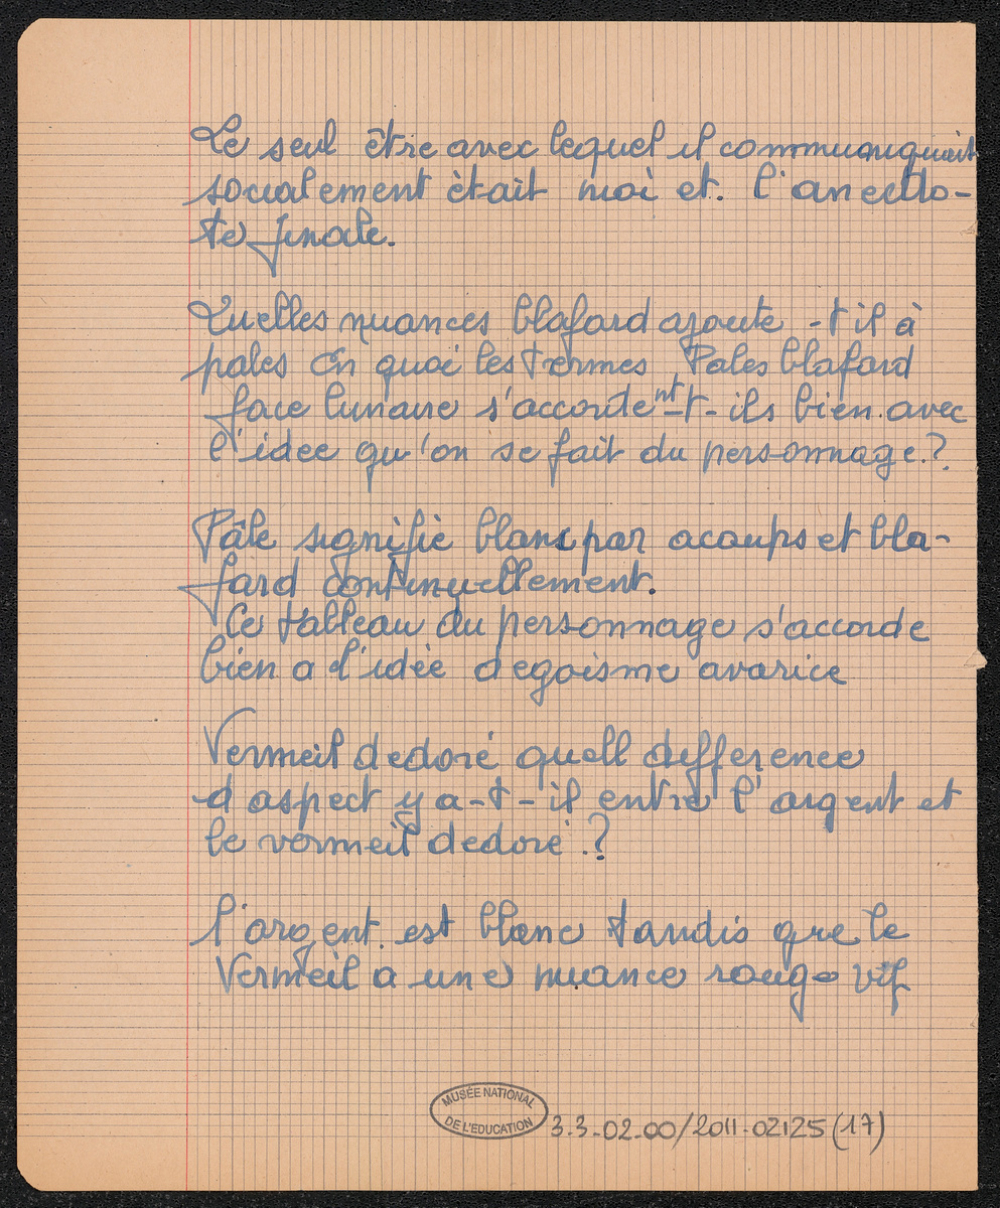 Le seul être avec lequel il communiquait
socialement était moi et. l'anecdo-
te finale.
Quelles nuances blafard ajoute -t il à
pales En quoi les termes Pales blafard
face lunaire s'accorde nt -t- ils bien avec
l'idee qu'on se fait du personnage.?
Pâle signifie blanc par acoups et bla-
fard continuellement.
Ce tableau du personnage s'accorde
bien a l'idée d egoisme avarice
Vermeil dedoré quell difference
d aspect y a-t-il entre l'argent et
le vermeil dedoré.?
l'argent est blanc tandis que le
Vermeil a une nuance rouge vif
MUSÉE NATIONAL
DE L'EDUCATION
3.3-02.00/2011-02125(17)